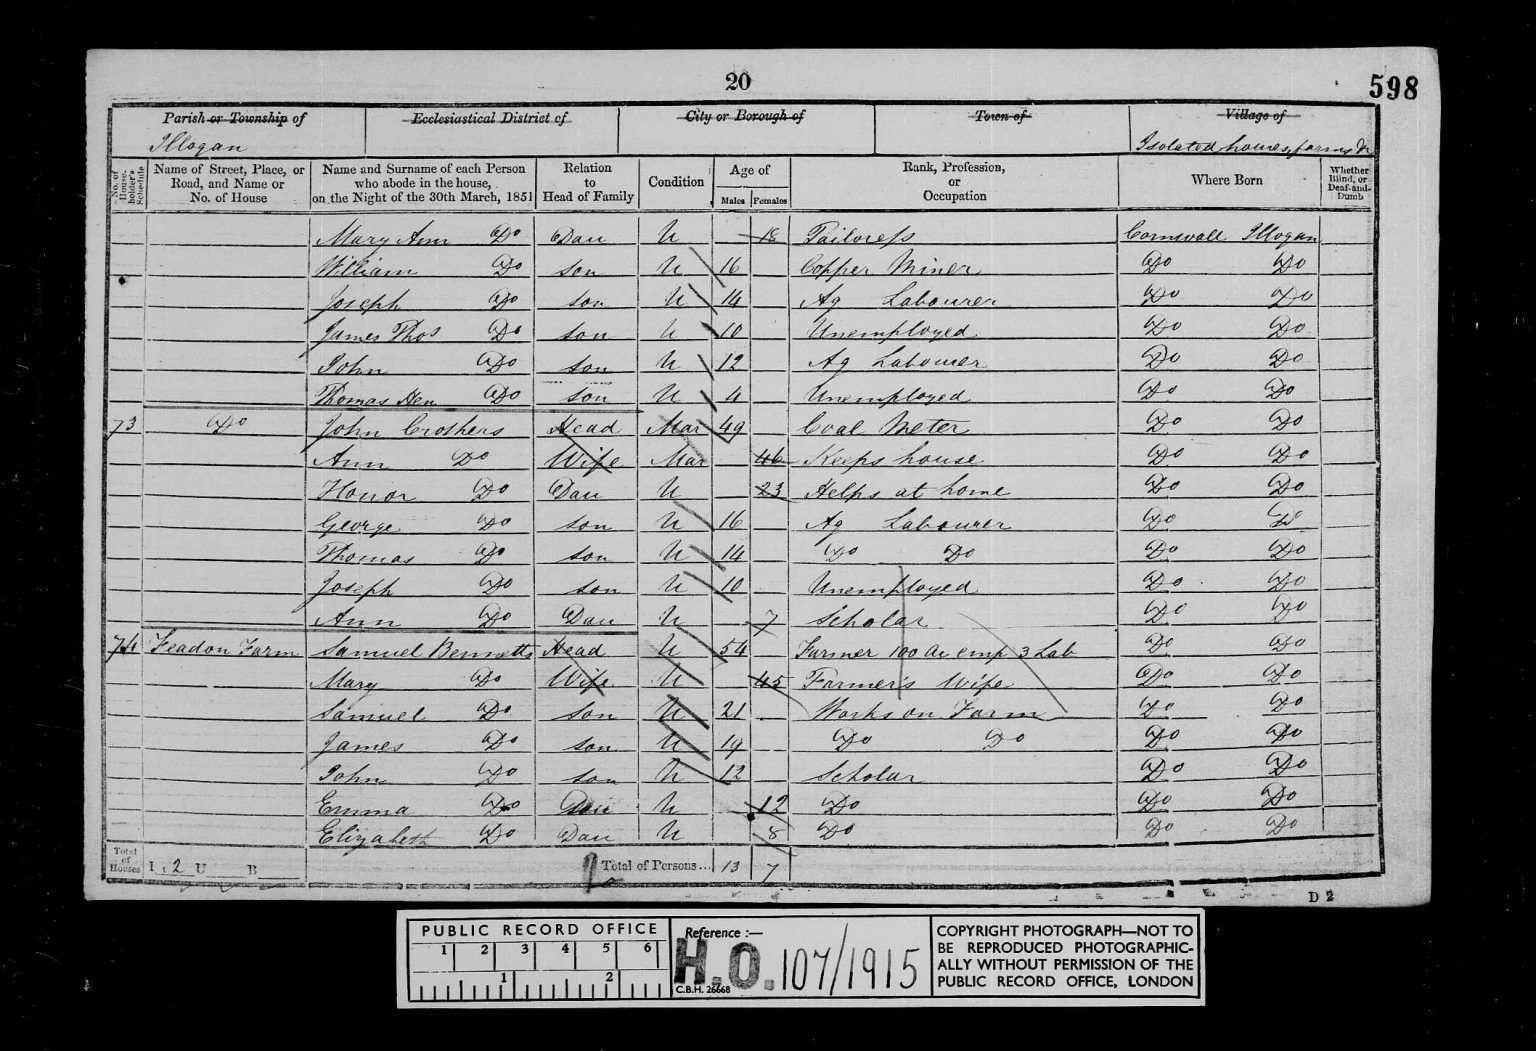 20
598
Parish or Township of
Ecclesiastical District of
City or Borough of
Town of
Village of
Illogan
Isolated houses, farms &c
No. of House-holder's Schedule
Name of Street, Place, or Road, and Name or No. of House
Name and Surname of each Person who abode in the house, on the Night of the 30th March, 1851
Relation to Head of Family
Condition
Age of
Males
Females
Rank, Profession, or Occupation
Where Born
Whether Blind, or Deaf-and-Dumb
Mary Ann Do Dau U 18 Tailoress Cornwall Illogan
William Do son U 16 Copper Miner Do Do
Joseph Do son U 14 Ag Labourer Do Do
James Thos Do son U 10 Unemployed Do Do
John Do son U 12 Ag Labourer Do Do
Thomas Hen Do son U 4 Unemployed Do Do
73 Do John Crothers Head Mar 49 Coal Meter Do Do
Ann Do Wife Mar 46 Keeps house Do Do
Honor Do Dau U 23 Helps at home Do Do
George Do son U 16 Ag Labourer Do Do
Thomas Do son U 14 Do Do Do Do
Joseph Do son U 10 Unemployed Do Do
Ann Do Dau U 7 Scholar Do Do
74 Feadon Farm Samuel Bennetts Head U 54 Farmer 100 Ac emp 3 Lab Do Do
Mary Do Wife U 45 Farmer's Wife Do Do
Samuel Do son U 21 Works on Farm Do Do
James Do son U 19 Do Do Do Do
John Do son U 12 Scholar Do Do
Emma Do Dau U 12 Do Do Do
Elizabeth Do Dau U 8 Do Do Do
Total of Houses I 2 U B Total of Persons... 13 7
D 2
PUBLIC RECORD OFFICE
1 2 3 4 5 6
1 2
Reference :—
H.O. 107/1915
C.B.H. 26668
COPYRIGHT PHOTOGRAPH—NOT TO
BE REPRODUCED PHOTOGRAPHIC-
ALLY WITHOUT PERMISSION OF THE
PUBLIC RECORD OFFICE, LONDON